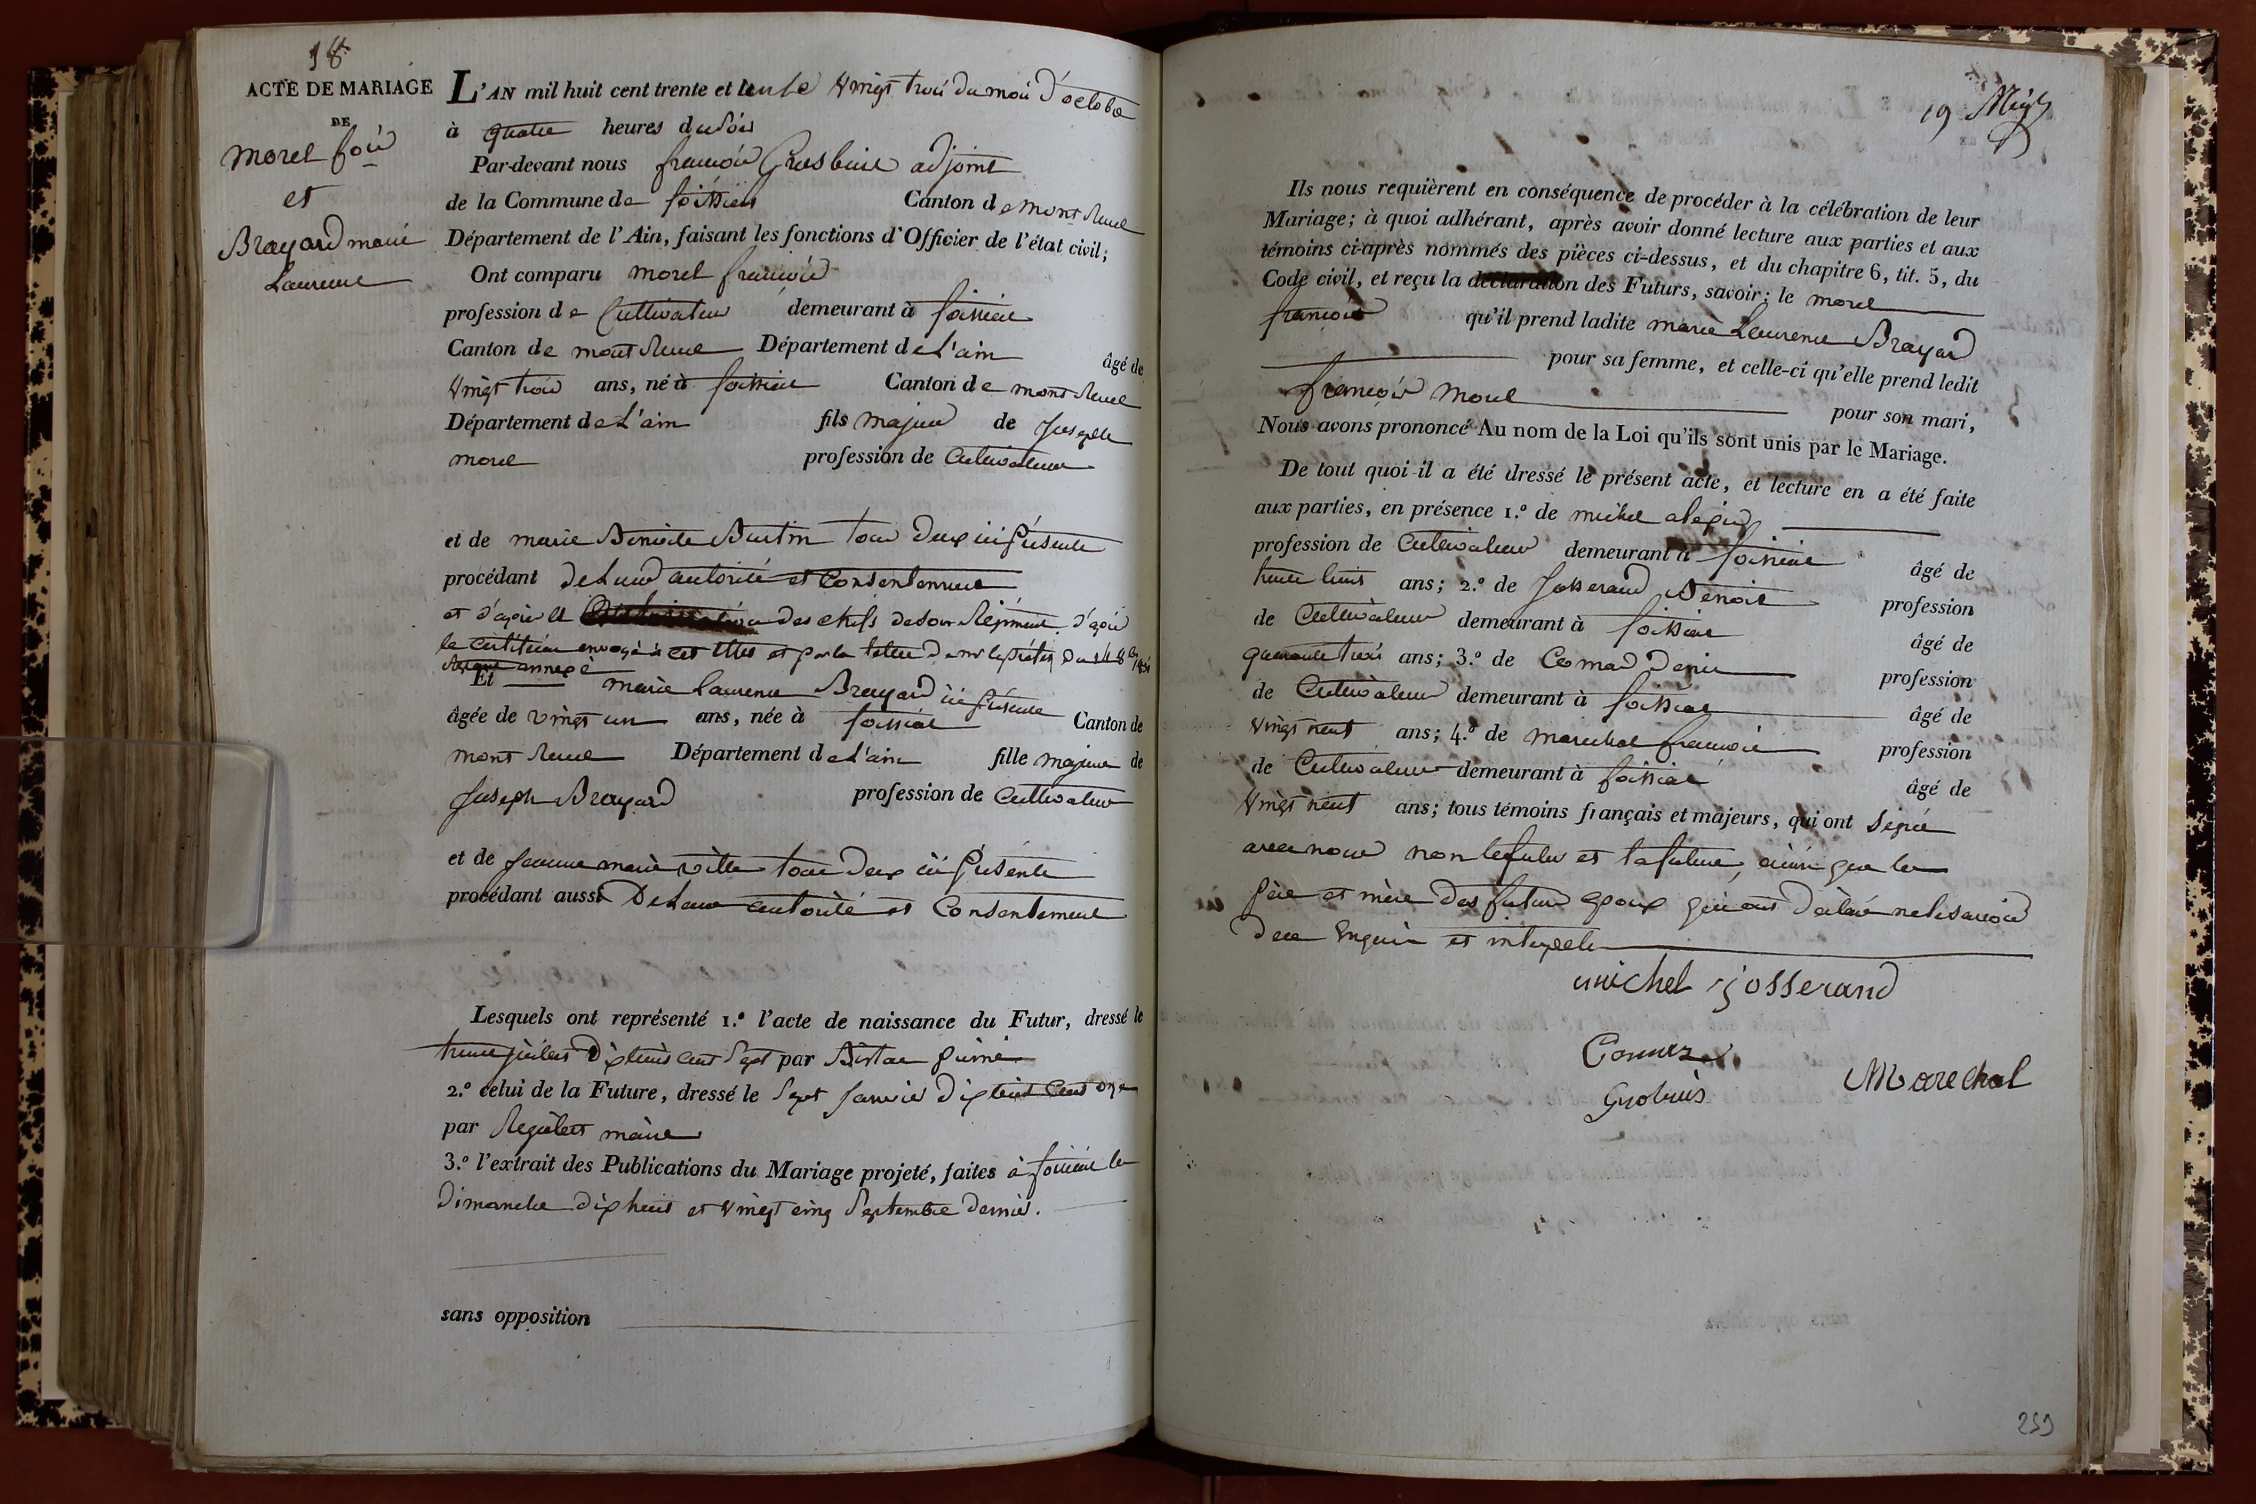 18
ACTE DE MARIAGE
DE
morel fois
et
Brayard marie
Laurence
L'AN mil huit cent trente et un le vingt troi du moi d'octobre
à quatre heures du soir
Par-devant nous francois Grosbuis adjoint
de la Commune de foissiat Canton de montrevel
Département de l'Ain, faisant les fonctions d'Officier de l'état civil;
Ont comparu morel francois
profession de Cultivateur demeurant à foissiat
Canton de montrevel Département de L'ain âgé de
vingt trois ans, né à foissiat Canton de montrevel
Département de L'ain fils majeur de Joseph
morel profession de Cultivateur
et de marie Benoite Burtin tous deux ici présents
procédant de Leur autorité et Consentement
et d'après des chefs de son Régiment d'après
le envoyé à cet effet et par la lettre de mr le préfet du
annexé
Et marie Laurence Brayard ici présente
âgée de vingt un ans, née à foissiat Canton de
montrevel Département de L'ain fille majeure de
Joseph Brayard profession de Cultivateur
et de Jeanne marie vitte tous deux ici présents
procédant aussi De Leur autorité et Consentement
Lesquels ont représenté 1.º l'acte de naissance du Futur, dressé le
dix huit cent sept par
2.º celui de la Future, dressé le Sept Janvier dix huit cent onze
par maire
3.º l'extrait des Publications du Mariage projeté, faites à foissiat les
Dimanche dix huit et vingt cinq Septembre dernier.
sans opposition
19
Ils nous requièrent en conséquence de procéder à la célébration de leur
Mariage; à quoi adhérant, après avoir donné lecture aux parties et aux
témoins ci-après nommés des pièces ci-dessus, et du chapitre 6, tit. 5, du
Code civil, et reçu la déclaration des Futurs, savoir: le morel
francois qu'il prend ladite marie Laurence Brayard
pour sa femme, et celle-ci qu'elle prend ledit
francois morel pour son mari,
Nous avons prononcé Au nom de la Loi qu'ils sont unis par le Mariage.
De tout quoi il a été dressé le présent acte, et lecture en a été faite
aux parties, en présence 1.º de michel alexis
profession de Cultivateur demeurant à foissiat âgé de
trente huit ans; 2.º de Josserand Benoit profession
de Cultivateur demeurant à foissiat âgé de
quarante trois ans; 3.º de Denis profession
de Cultivateur demeurant à foissiat âgé de
vingt neuf ans; 4.º de marechal francois profession
de Cultivateur demeurant à foissiat âgé de
vingt neuf ans; tous témoins français et majeurs, qui ont signé
avec nous non le futur et la future, ainsi que les
père et mère des futurs epoux qui ont déclaré ne le savoir
de ce enquis et interpelés
michel josserand
Marechal
Grosbuis
259